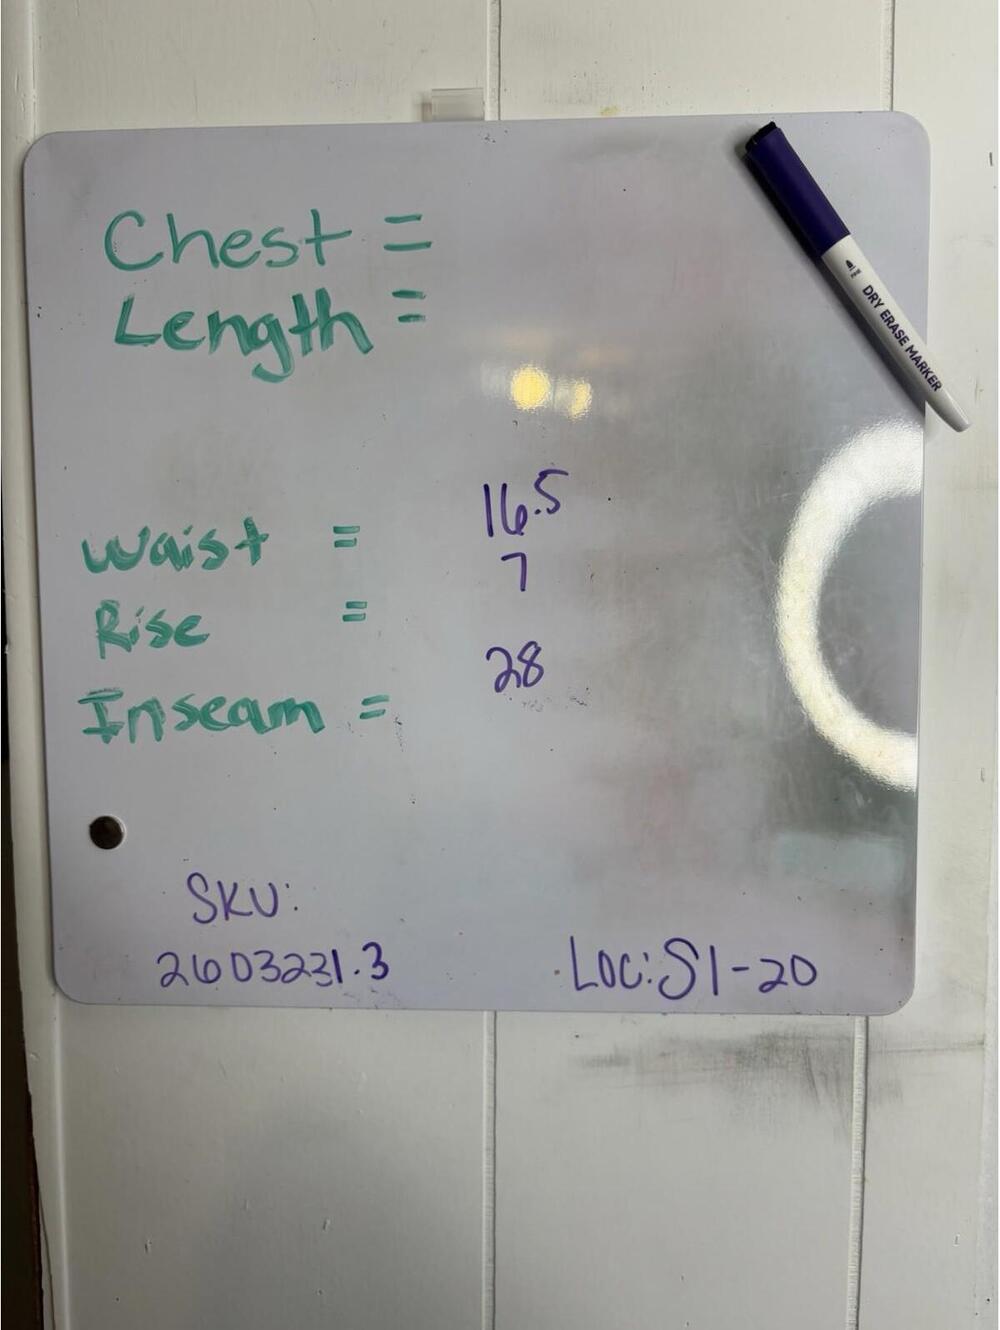 Chest =
Length =
Waist = 16.5
Rise = 7
Inseam = 28
SKU:
2603231.3
Loc: S1-20
DRY ERASE MARKER